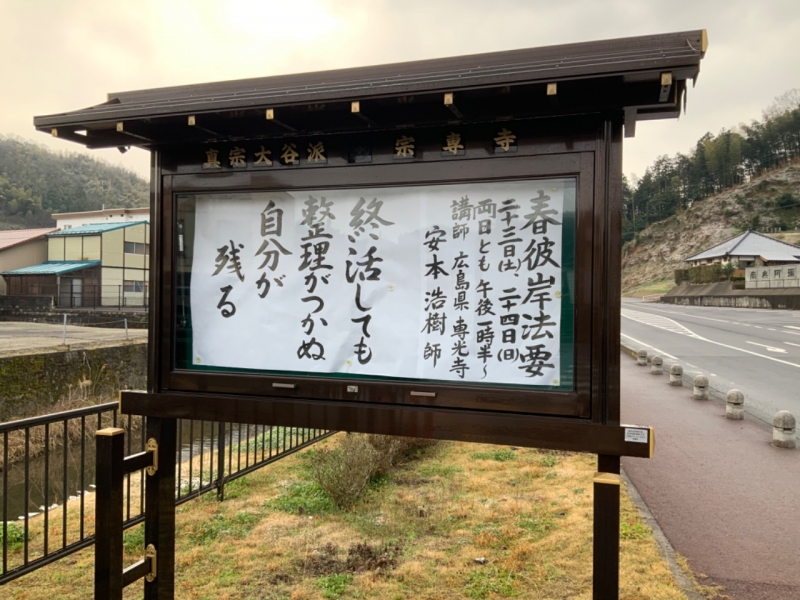 真宗大谷派 宗専寺
春彼岸法要
二十三日(土) 二十四日(日)
両日とも 午後一時半〜
講師 広島県 専光寺
安本浩樹師
終活しても
整理がつかぬ
自分が
残る